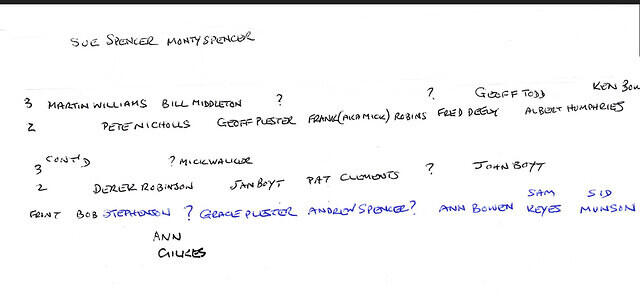 SUE SPENCER MONTY SPENCER
3 MARTIN WILLIAMS BILL MIDDLETON ? ? GEOFF TODD KEN
2 PETE NICHOLLS GEOFF PLESTER FRANK (AKA MICK) ROBINS FRED DEELY ALBERT HUMPHRIES
3 CONT'D ? MICK WALKER
2 DEREK ROBINSON JAN BOYT PAT CLEMENTS ? JOHN BOYT
FRONT BOB STEPHENSON ? GRACE PLESTER ANDREW SPENCER? ANN BOWEN SAM KEYES SID MUNSON
ANN
GILKES